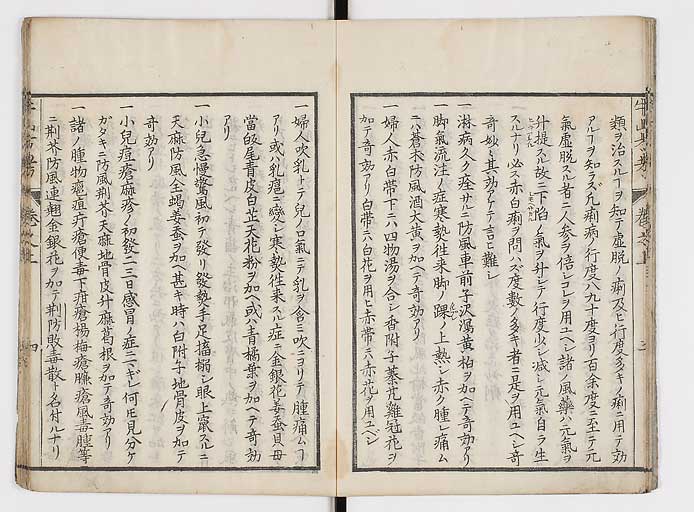 類ヲ治スルヿヲ知テ虚脱ノ痢及ヒ行度多キノ痢ニ用テ効
アルヿヲ知ラズ凡痢病ノ行度八九十度ヨリ百余度ニ至テハ元
氣虚脱スル者ニ人参ヲ倍シコレヲ用ユヘシ諸ノ風藥ハ元氣ヲ
升提スル故ニ下陷ノ氣ヲ升シテ行度少シ減シ元氣自ラ生
スルナリ必ス赤白痢ヲ問ハズ度数ノ多キ者ニ是ヲ用ユヘシ奇
奇妙々其効アケテ言ヒ難シ
一 淋病久ク痊サルニ防風車前子沢瀉黄柏ヲ加ヘテ奇効アリ
一 脚氣流注ノ症寒熱徃来脚ノ踝ノ上熱シ赤ク腫レ痛ム
ニハ蒼朮防風酒大黄ヲ加ヘ奇効アリ
一 婦人赤白帯下ニハ四物湯ヲ合シ香附子蓁艽雞冠花ヲ
加テ奇効アリ白帯ニハ白花ヲ用ヒ赤帯ニハ赤花ヲ用ユヘシ
一 婦人吹乳トテ兒ノ口氣ニテ乳ヲ含ミ吹ニヨリテ腫痛ムヿ
アリ或ハ乳癰ニ變シ寒熱徃来スル症ニ金銀花姜蚕貝母
當皈尾青皮白芷天花粉ヲ加ヘ或ハ青橘葉ヲ加ヘテ奇効
アリ
一 小兒急慢驚風初テ發リ發熱手足搐搦シ眼上竄スルニ
天麻防風全蝎姜蚕ヲ加ヘ甚キ時ハ白附子地骨皮ヲ加テ
奇効アリ
一 小兒痘瘡麻疹ノ初發二三日感冒ノ症ニマギレ何氏見分ケ
ガタキニ防風荆芥天麻地骨皮升麻葛根ヲ加テ奇効アリ
一 諸ノ腫物癰疽疔瘡便毒下疳瘡楊梅瘡臁瘡風毒腫等
ニ荆芥防風連翹金銀花ヲ加テ荆防敗毒散ト名付ルナリ